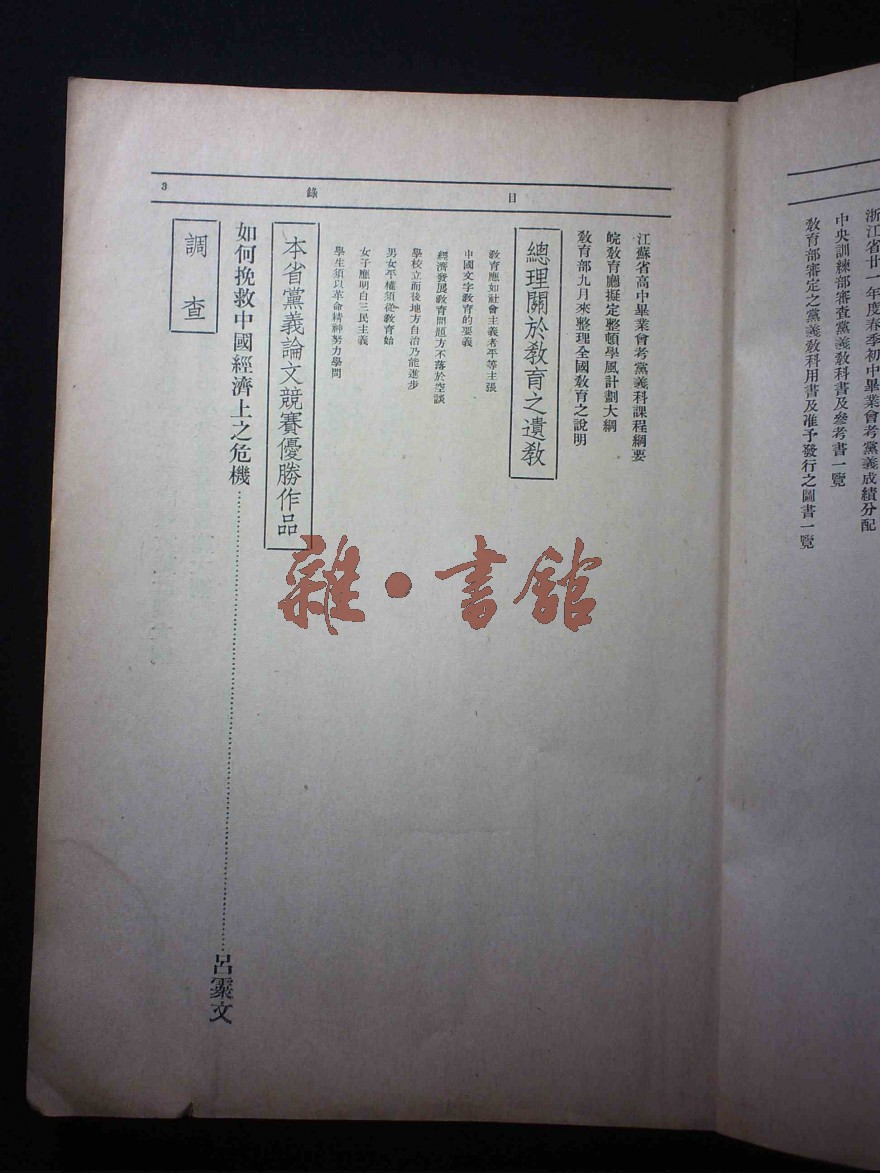 浙江省廿一年度春季初中畢業會考黨義成績分配
中央訓練部審查黨義教科書及參考書一覽
教育部審定之黨義教科用書及准予發行之圖書一覽
目錄
3
江蘇省高中畢業會考黨義科課程綱要
皖教育廳擬定整頓學風計劃大綱
教育部九月來整理全國教育之說明
總理關於教育之遺教
教育應如社會主義者平等主張
中國文字教育的要義
經濟發展教育問題方不落於空談
學校立而後地方自治乃能進步
男女平權須從教育始
女子應明白三民主義
學生須以革命精神努力學問
本省黨義論文競賽優勝作品
如何挽救中國經濟上之危機……呂霖文
調查
雜·書館